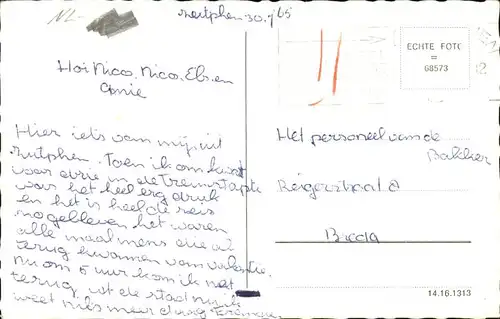 Zutphen 30.7 65
ECHTE FOTO
=
68573
Hoi Nico, Nico, Eb. en
Conie
Hier iets van mij uit
Zutphen. Toen ik om kwart
voor in de Trein stapte
was het heel erg druk
en het is heel de reis
zo gebleven het waren
alle maal mens die al
terug kwamen van vakantie.
nu om 5 uur kom ik net
terug uit de stad
weet niks meer dag
Het personeel van de
Bakker
Reigerstraat 2
Breda
14.16.1313